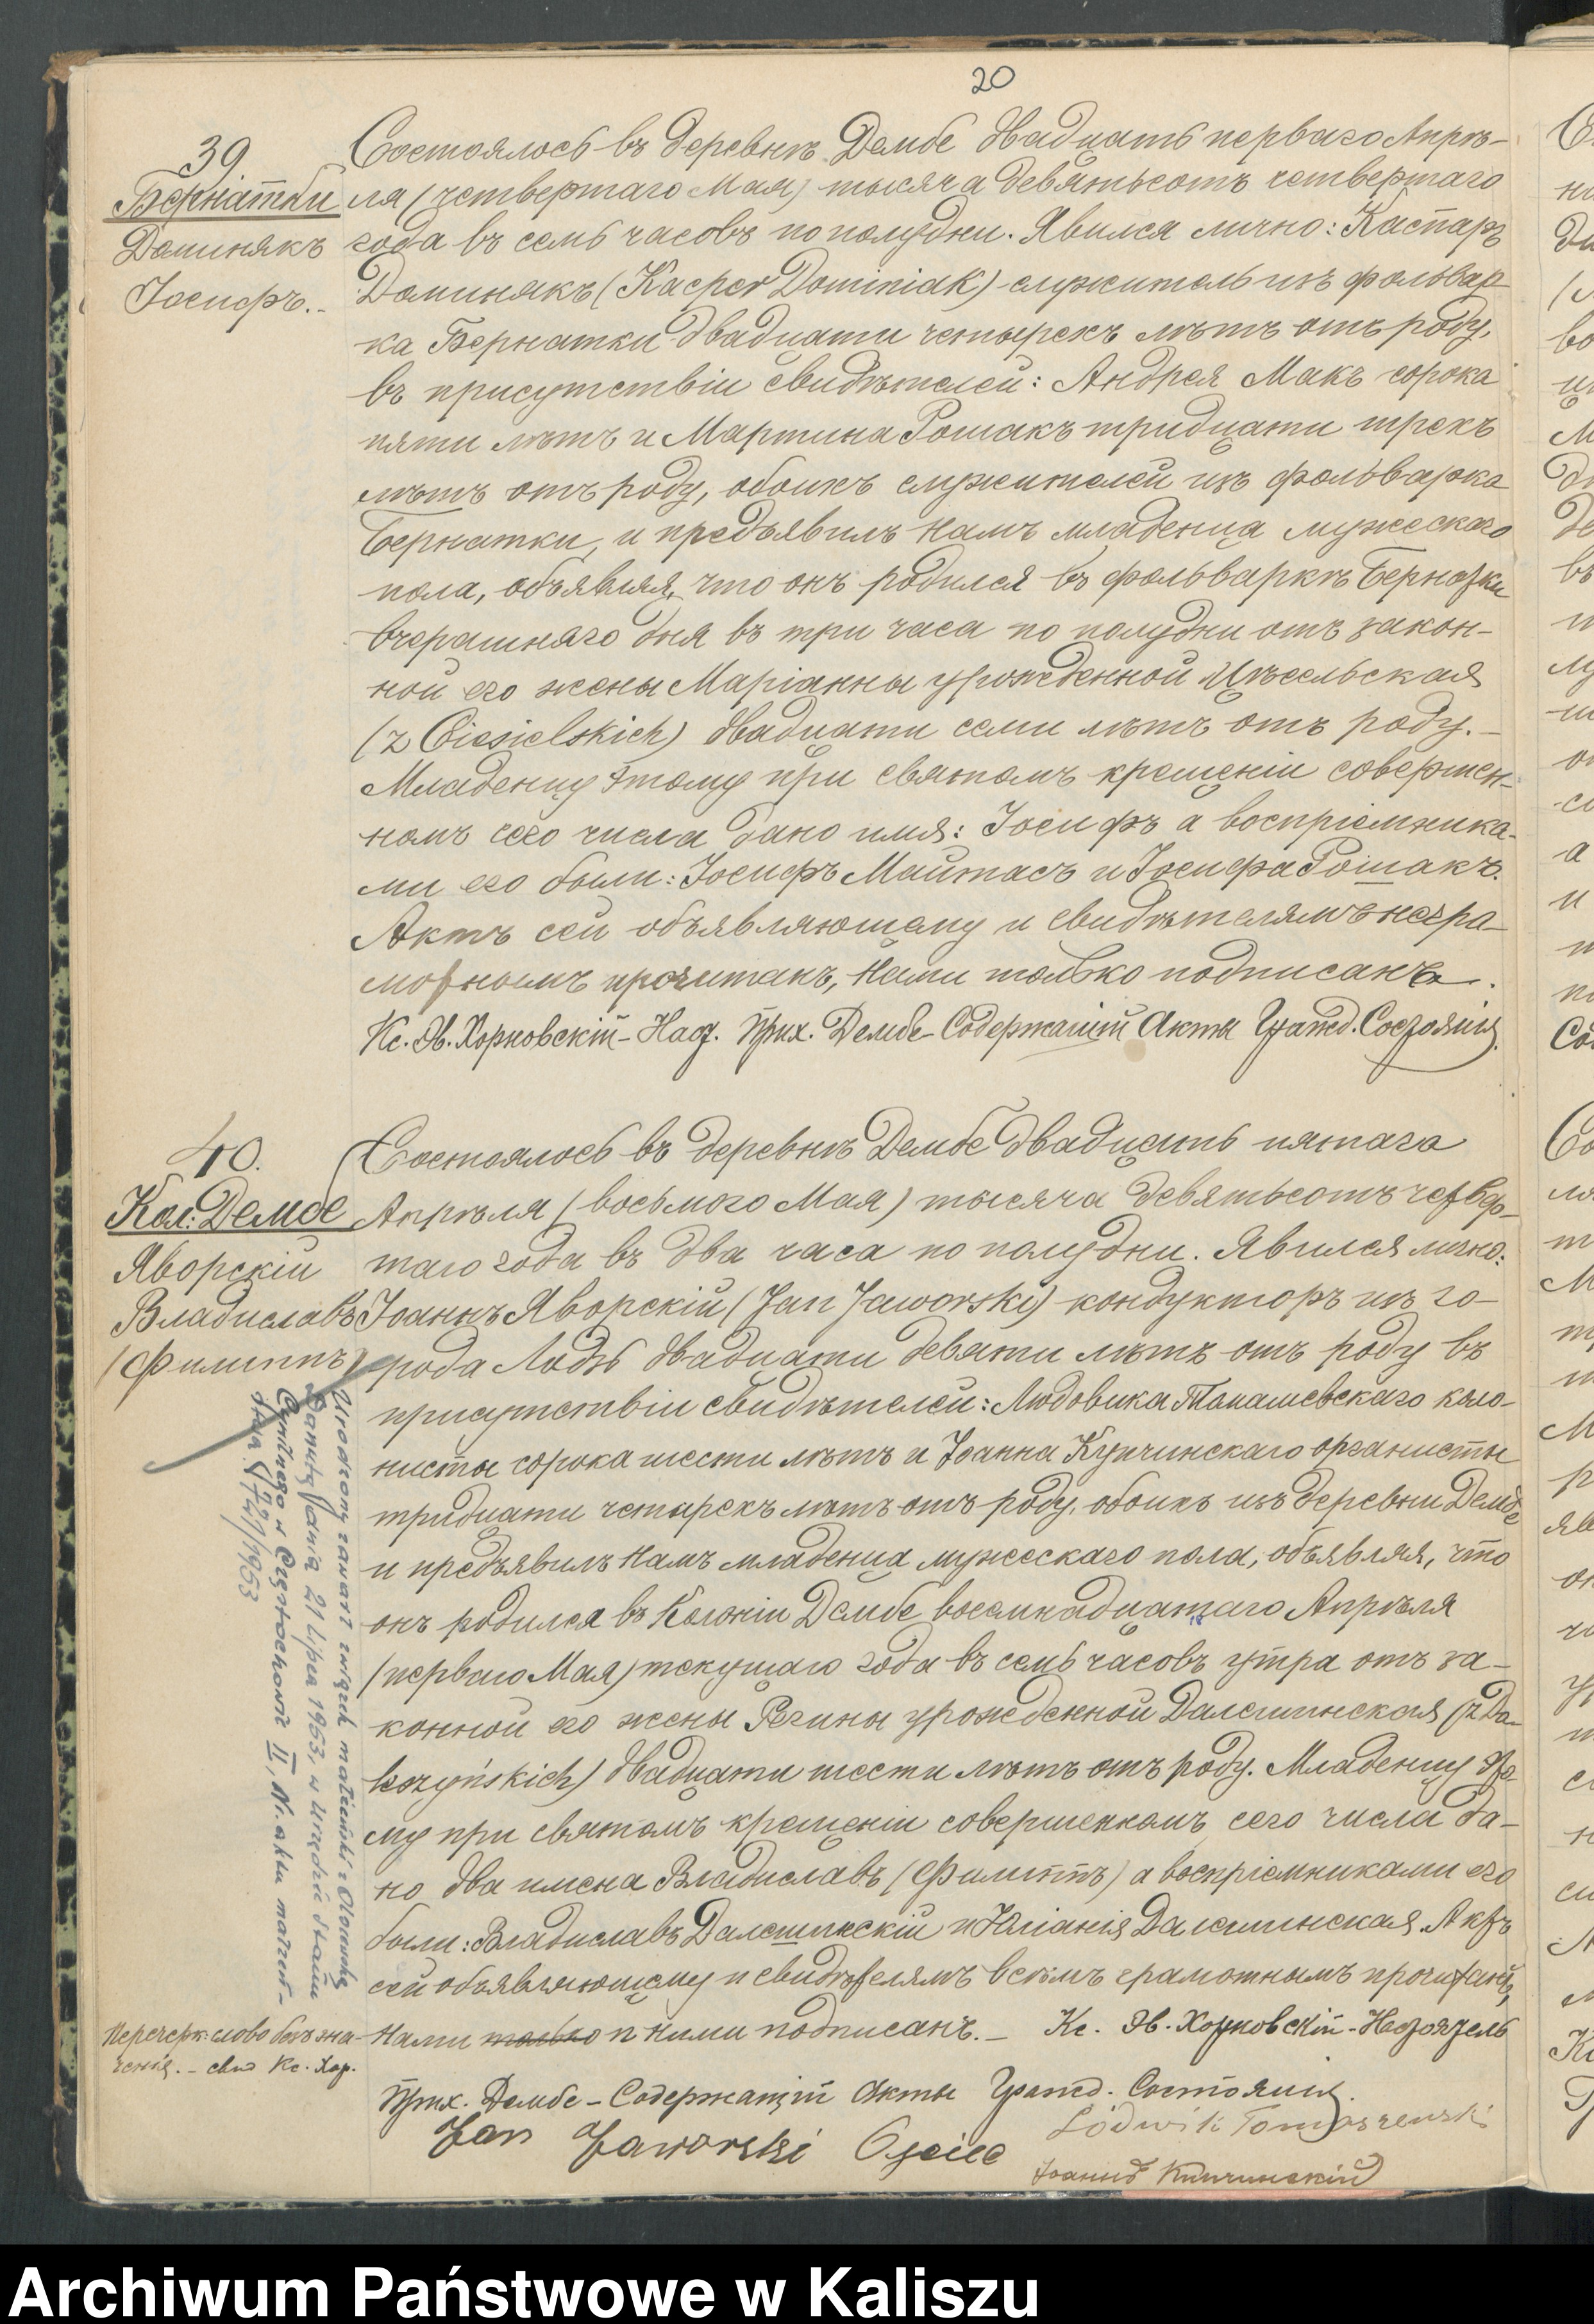 20
39
Бернатки
Доминякъ
Іосифъ.
Состоялось въ деревнѣ Дембе двадцать перваго Апрѣ-
ля (четвертаго Мая) тысяча девятьсотъ четвертаго
года въ семь часовъ по полудни. Явился лично: Каспаръ
Доминякъ (Kacper Dominiak) служитель изъ фольвар-
ка Бернатки двадцати четырехъ лѣтъ отъ роду,
въ присутствіи свидѣтелей: Андрея Макъ сорока
пяти лѣтъ и Мартина Рошакъ тридцати трехъ
лѣтъ отъ роду, обоихъ служителей изъ фольварка
Бернатки, и предъявилъ намъ младенца мужескаго
пола, объявляя, что онъ родился въ фольваркѣ Бернатки
вчерашняго дня въ три часа по полудни отъ закон-
ной его жены Маріанны урожденной Цѣсельская
(z Ciesielskich) двадцати семи лѣтъ отъ роду.-
Младенцу этому при святомъ крещеніи совершен-
номъ сего числа дано имя: Іосифъ а воспріемника-
ми его были: Іосифъ Майтасъ и Іосифа Рошакъ.
Актъ сей объявляющему и свидѣтелямъ негра-
мотнымъ прочитанъ, Нами только подписанъ.
Кс. Эв. Хорновскій - Наст. Прих. Дембе - Содержащій Акты Гражд. Состоянія.
40.
Кол. Дембе
Яворскій
Владиславъ
(Филиппъ)
Состоялось въ деревнѣ Дембе двадцать пятаго
Апрѣля (восьмого Мая) тысяча девятьсотъ четвер-
таго года въ два часа по полудни. Явился лично:
Іоаннъ Яворскій (Jan Jaworski) кондукторъ изъ го-
рода Лодзь двадцати девяти лѣтъ отъ роду въ
присутствіи свидѣтелей: Людовика Томашевскаго коло-
нисты сорока шести лѣтъ и Іоанна Купчинскаго органисты
тридцати четырехъ лѣтъ отъ роду, обоихъ изъ деревни Дембе
и предъявилъ Намъ младенца мужескаго пола, объявляя, что
онъ родился въ Колоніи Дембе восемнадцатаго Апрѣля
(перваго Мая) текущаго года въ семь часовъ утра отъ за-
конной его жены Регины урожденной Далешинская (z Da-
leszyńskich) двадцати шести лѣтъ отъ роду. Младенцу это-
му при святомъ крещеніи совершенномъ сего числа да-
но два имена Владиславъ (Филиппъ) а воспріемниками его
были: Владиславъ Далешинскій и Юліанія Далешинская. Актъ
сей объявляющему и свидѣтелямъ всѣмъ грамотнымъ прочитанъ,
Нами только и ними подписанъ.- Кс. Эв. Хорновскій - Настоятель
Прих. Дембе - Содержащій Акты Гражд. Состоянія.
Jan Jaworski Ojciec
Lódwik Tomaszewski
Іоаннъ Купчинскій
Urodzony zawarł związek małżeński z
Danutą Janią 21 lipca 1963, w Urzędzie Stanu
Cywilnego w Częstochowie II, Nr. aktu małżeń-
stwa 1963
Перечерк. слово безъ зна-
ченія. - Кс. Хор.
Archiwum Państwowe w Kaliszu